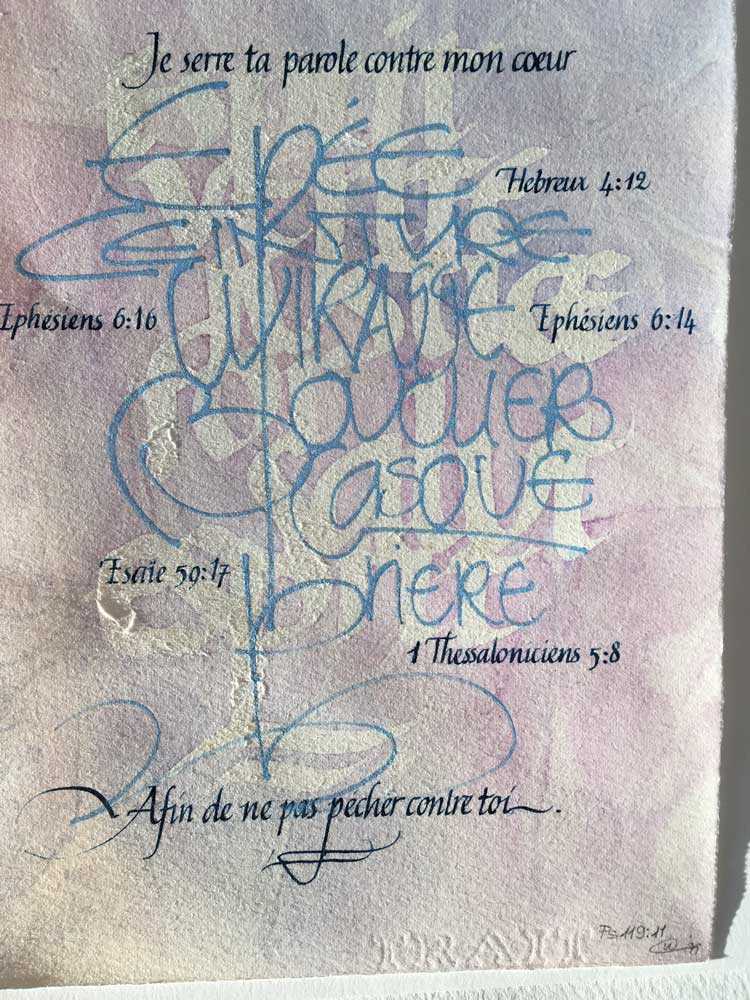 Je serre ta parole contre mon cœur
ÉPÉE
Hébreux 4:12
CEINTURE
CUIRASSE
Ephésiens 6:16
Ephésiens 6:14
BOUCLIER
CASQUE
Esaïe 59:17
PRIÈRE
1 Thessaloniciens 5:8
Afin de ne pas pécher contre toi.
Ps 119:11
TRAIT